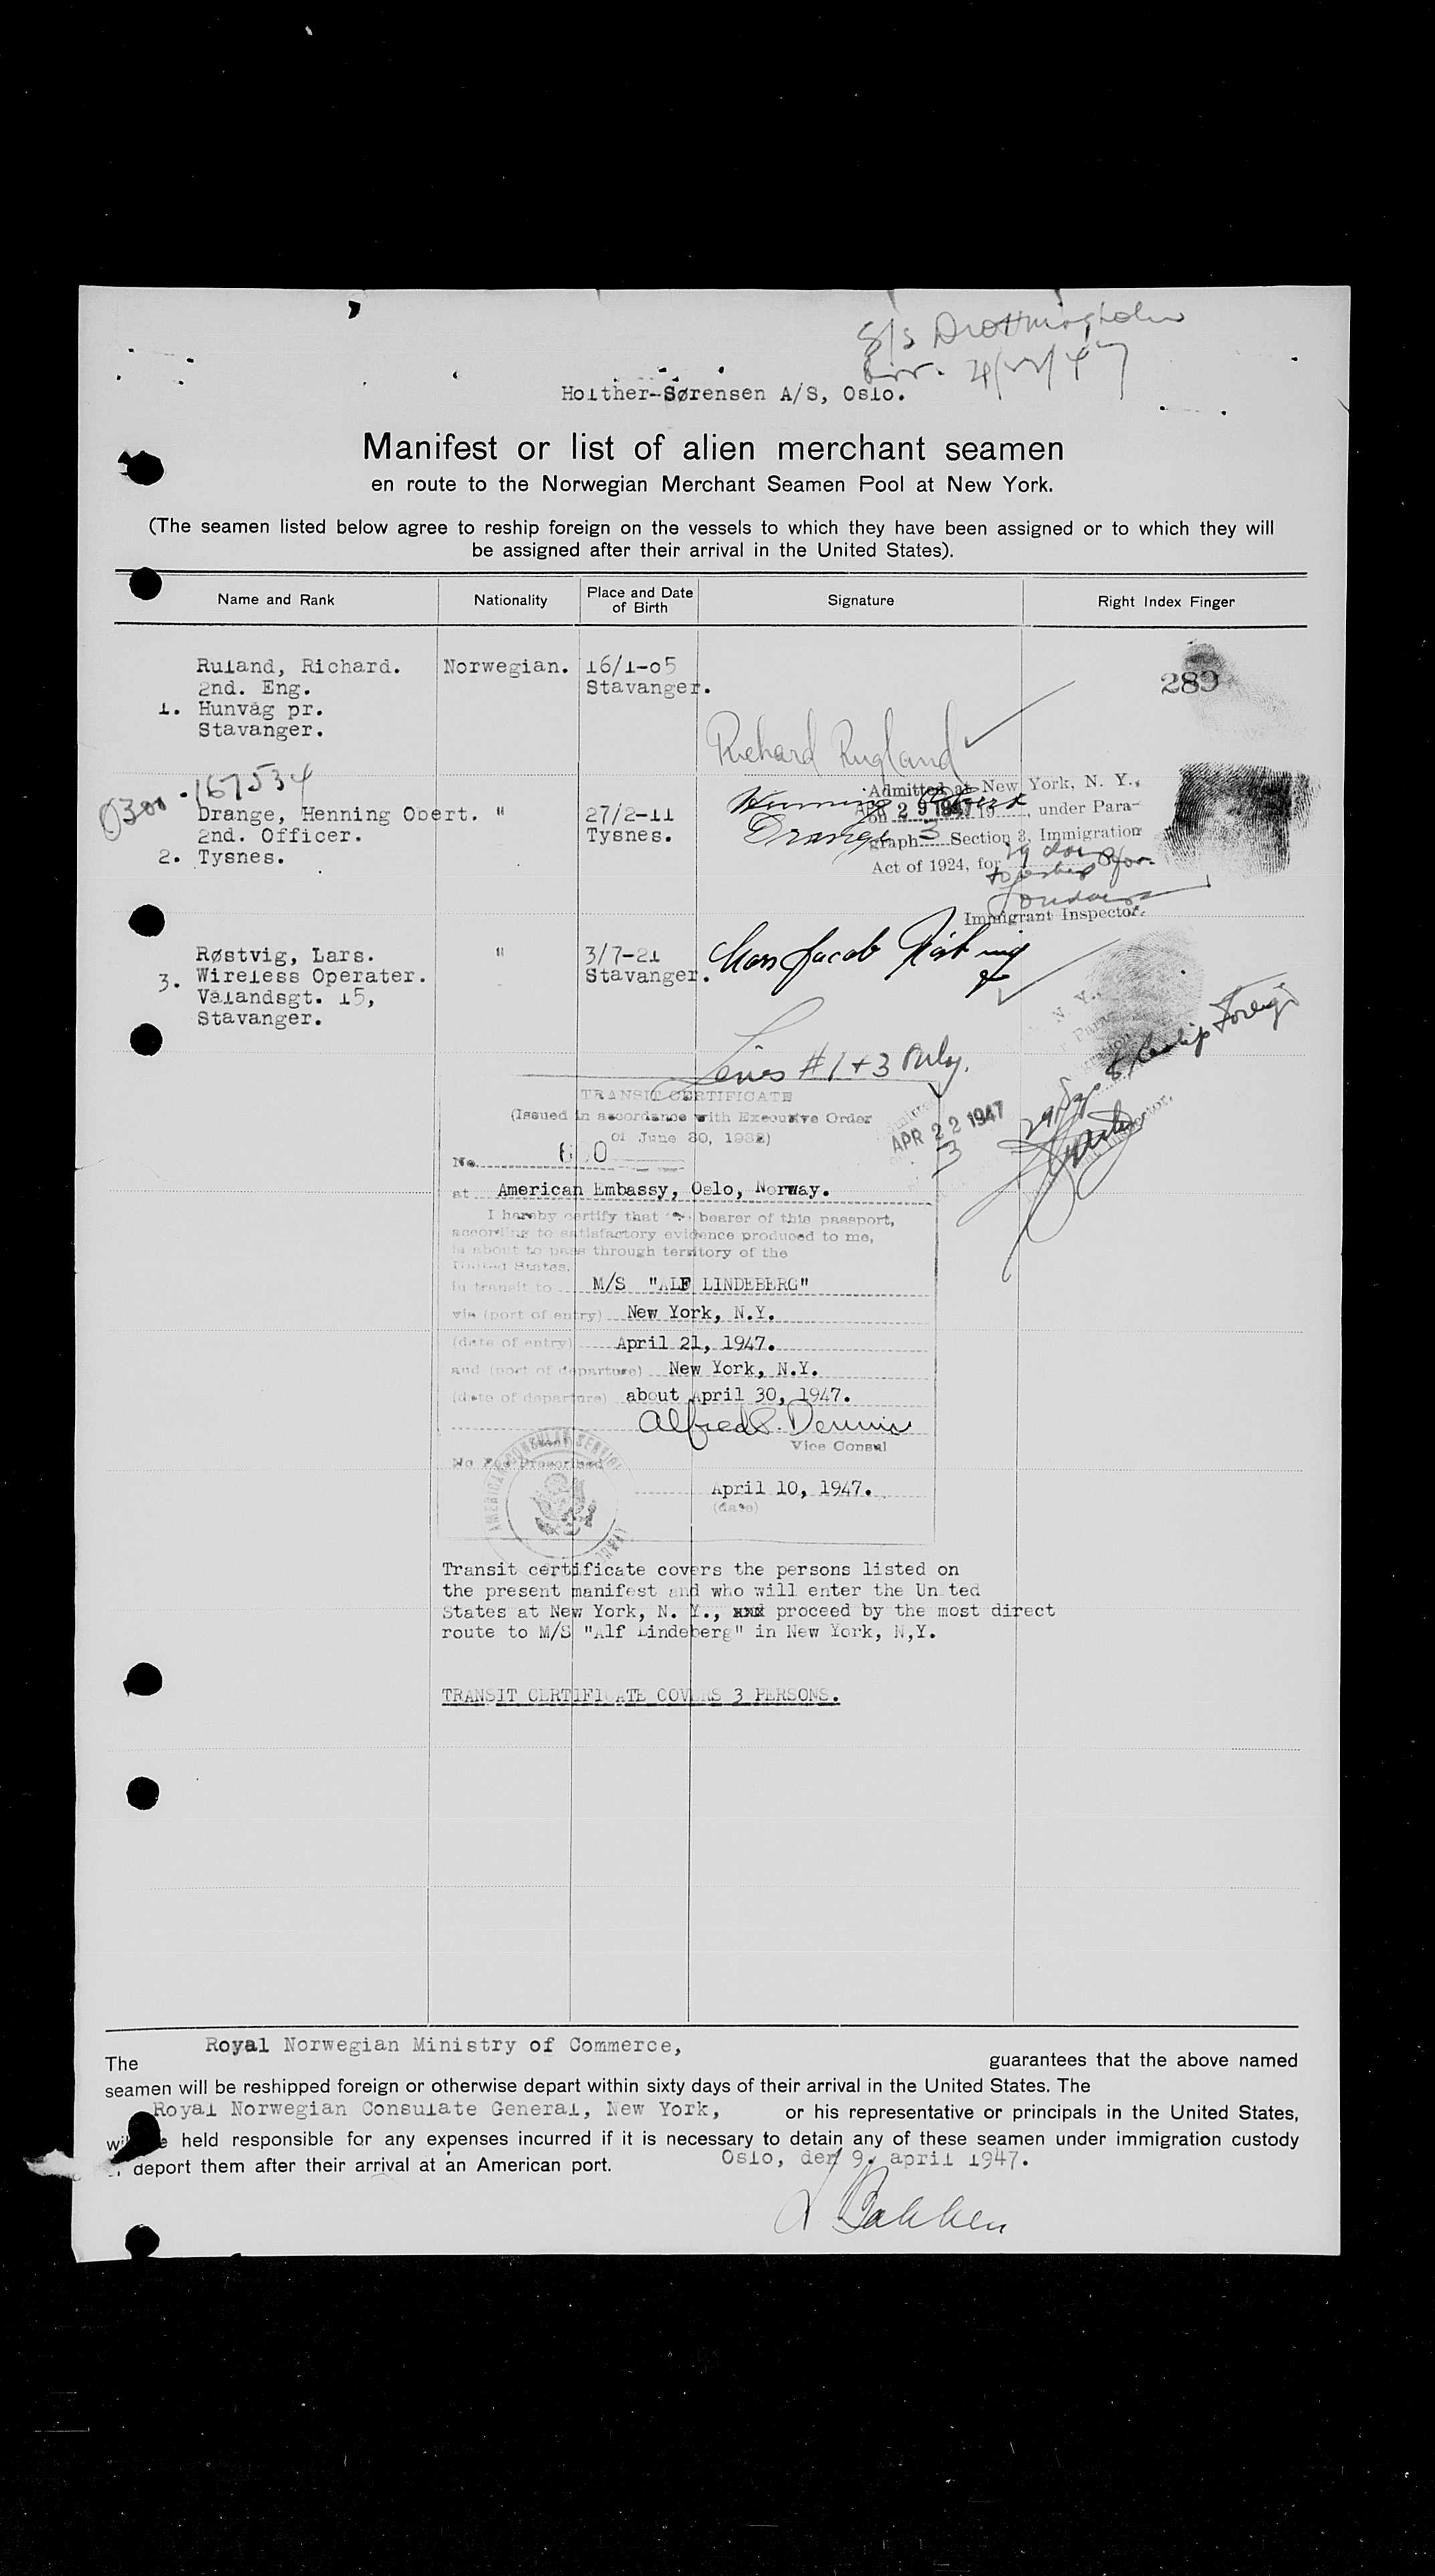 S/s Drottningholm
arr. 4/22/47
Holther-Sørensen A/S, Oslo.
Manifest or list of alien merchant seamen
en route to the Norwegian Merchant Seamen Pool at New York.
(The seamen listed below agree to reship foreign on the vessels to which they have been assigned or to which they will
be assigned after their arrival in the United States).
Name and Rank
Nationality
Place and Date
of Birth
Signature
Right Index Finger
Ruland, Richard. Norwegian. 16/1-05
2nd. Eng. Stavanger.
1. Hunvåg pr.
Stavanger.
289
Richard Rugland
0300-167534
Drange, Henning Obert. " 27/2-11
2nd. Officer. Tysnes.
2. Tysnes.
Henning Obert
Drange
Admitted at New York, N. Y.,
on APR 29 1947 19 , under Para-
graph 3 Section 3, Immigration
Act of 1924, for 29 days
Immigrant Inspector.
Røstvig, Lars. " 3/7-21
3. Wireless Operater. Stavanger.
Valandsgt. 15,
Stavanger.
Lars Jacob Røstvig
Lines # 1 + 3 only.
N. Y.,
APR 22 1947
3
29 days
to Reship Foreign
Inspector.
TRANSIT CERTIFICATE
(Issued in accordance with Executive Order
of June 30, 1932)
No.
at American Embassy, Oslo, Norway.
I hereby certify that the bearer of this passport,
according to satisfactory evidence produced to me,
is about to pass through territory of the
United States.
in transit to M/S "ALF LINDEBERG"
via (port of entry) New York, N.Y.
(date of entry) April 21, 1947.
and (port of departure) New York, N.Y.
(date of departure) about April 30, 1947.
Alfred P. Dennis
Vice Consul
No Fee Prescribed
AMERICAN CONSULAR SERVICE
April 10, 1947.
(date)
Transit certificate covers the persons listed on
the present manifest and who will enter the Un ted
States at New York, N. Y., xxd proceed by the most direct
route to M/S "Alf Lindeberg" in New York, N,Y.
TRANSIT CERTIFICATE COVERS 3 PERSONS.
Royal Norwegian Ministry of Commerce,
The guarantees that the above named
seamen will be reshipped foreign or otherwise depart within sixty days of their arrival in the United States. The
Royal Norwegian Consulate General, New York, or his representative or principals in the United States,
held responsible for any expenses incurred if it is necessary to detain any of these seamen under immigration custody
deport them after their arrival at an American port. Oslo, den 9. april 1947.
Bakken